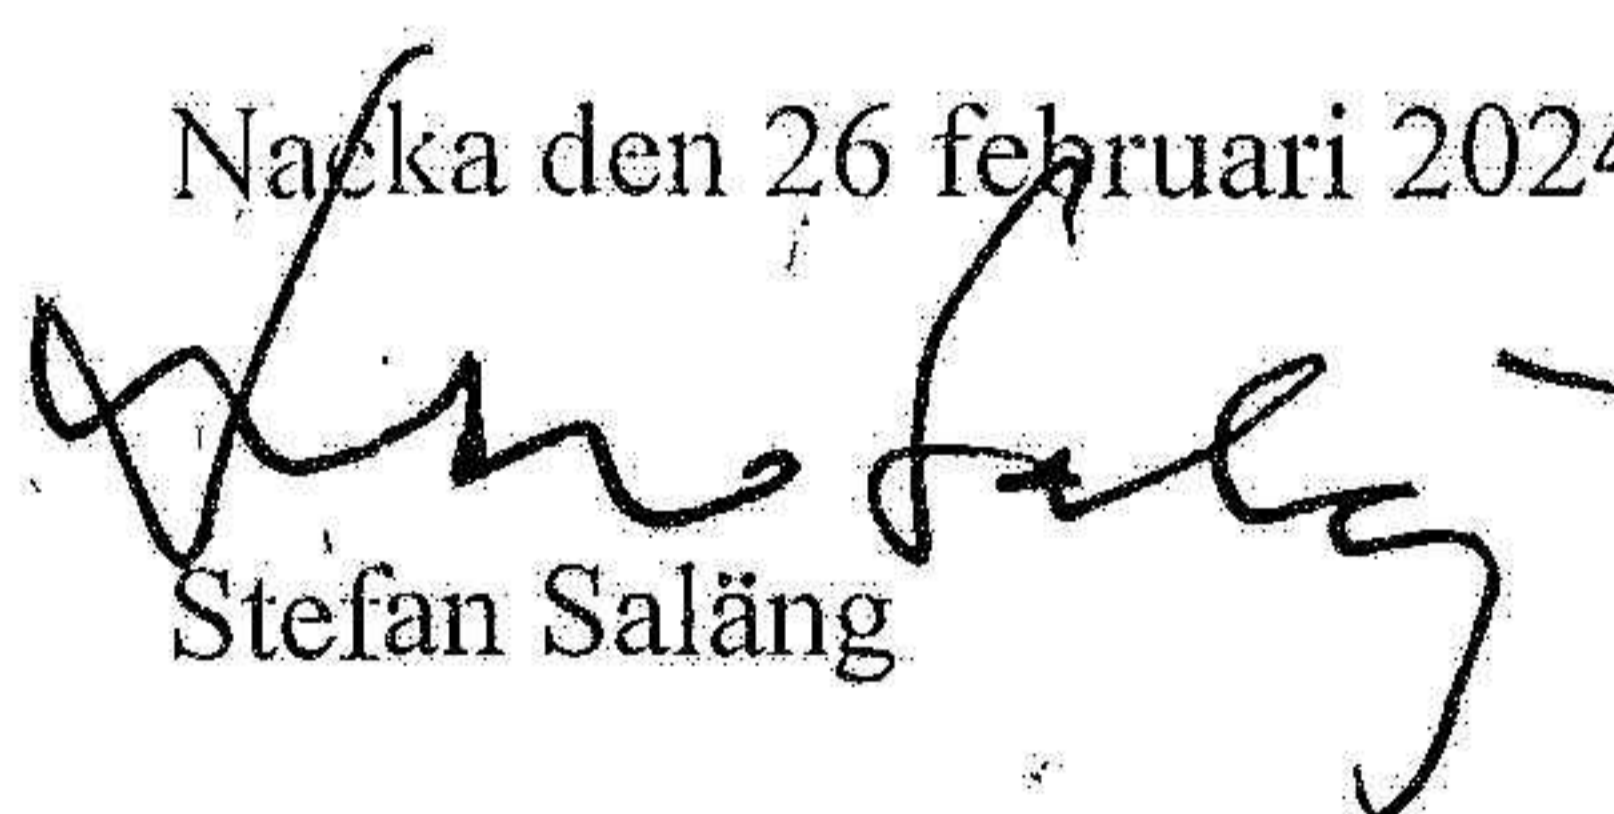 Nacka den 26 februari 2024
Stefan Saläng